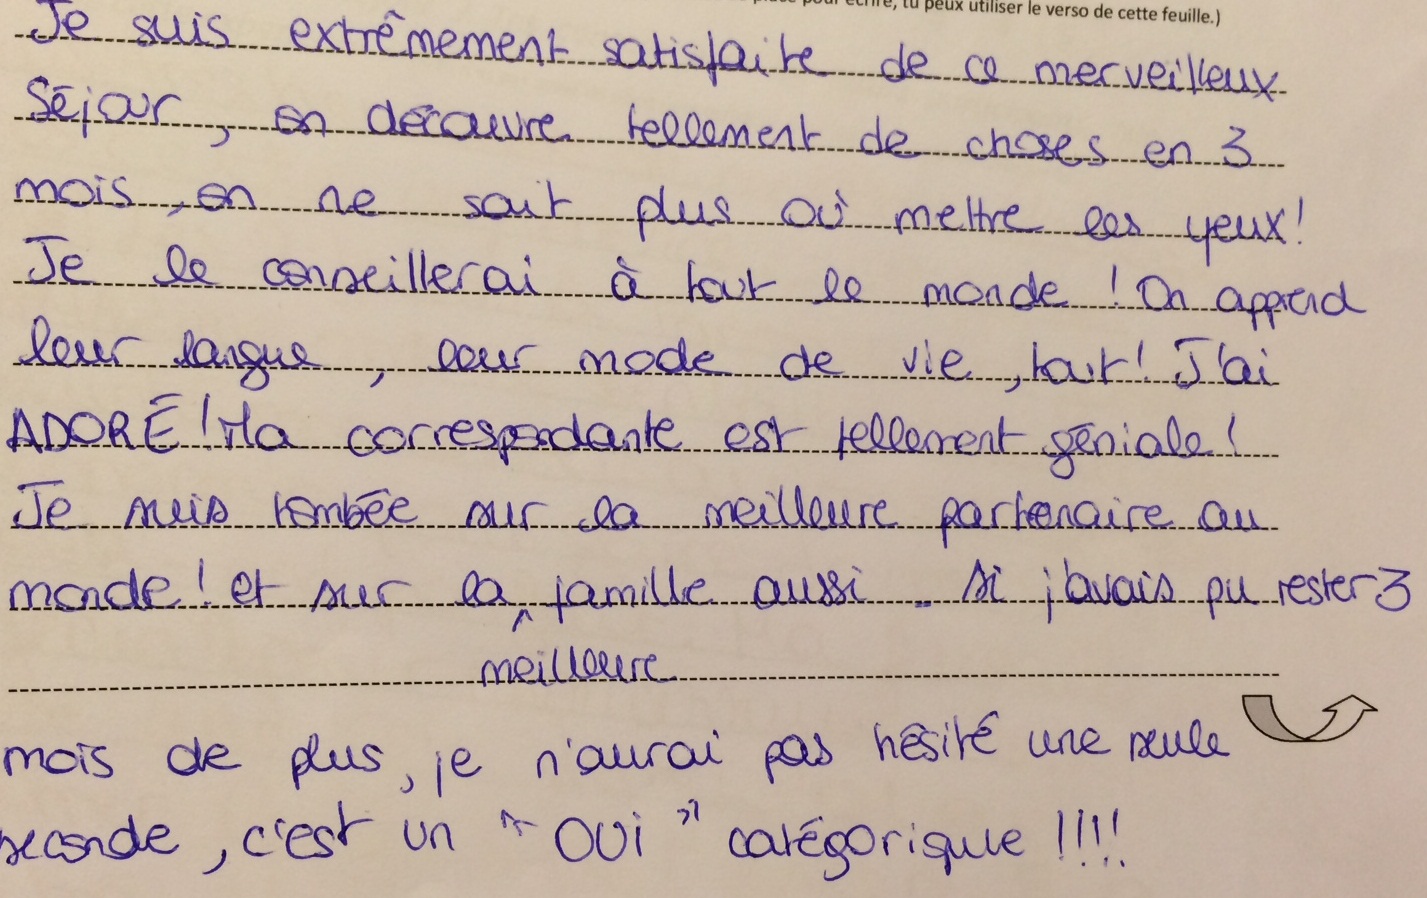 écrire, tu peux utiliser le verso de cette feuille.)
Je suis extrêmement satisfaite de ce merveilleux
Séjour, on découvre tellement de choses en 3
mois, on ne sait plus où mettre les yeux!
Je le conseillerai à tout le monde ! On apprend
leur langue, leur mode de vie, tout! J'ai
ADORÉ! Ma correspondante est tellement géniale!
Je suis tombée sur la meilleure partenaire au
monde! et sur la famille aussi. Si j'avais pu rester 3
^
meilleure
mois de plus, je n'aurai pas hésité une seule
seconde, c'est un "OUi" catégorique !!!!